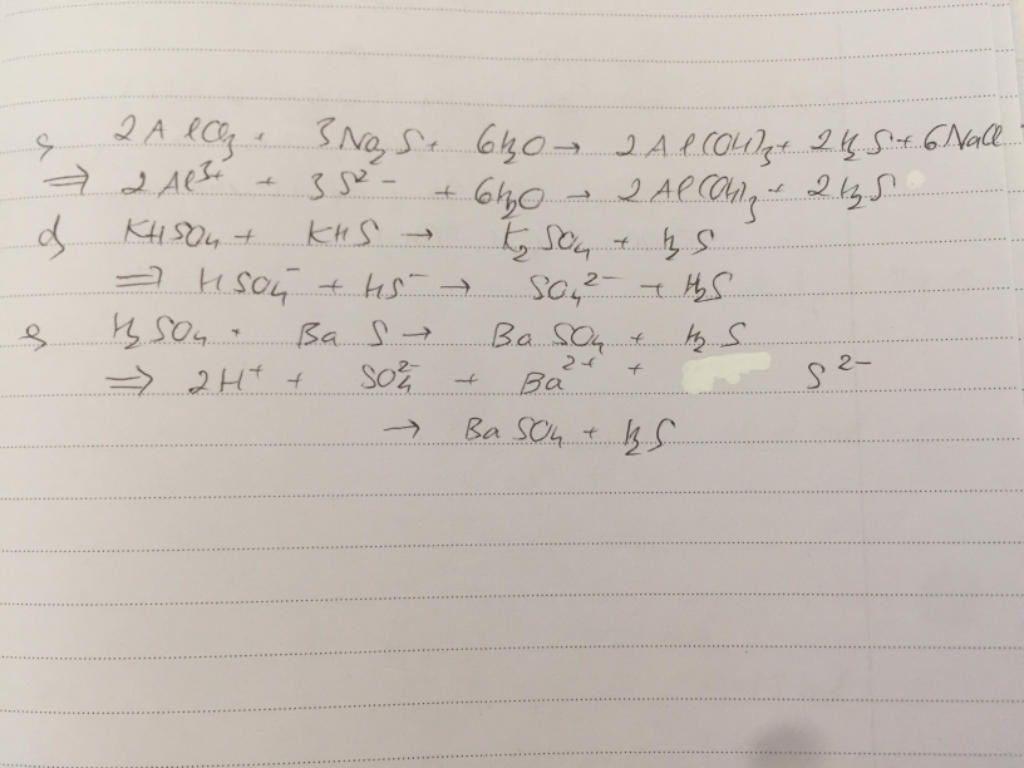 c, 2AlCl₃ + 3Na₂S + 6H₂O → 2Al(OH)₃ + 2H₂S + 6NaCl
⇒ 2Al³⁺ + 3S²⁻ + 6H₂O → 2Al(OH)₃ + 2H₂S
d, KHSO₄ + KHS → K₂SO₄ + H₂S
⇒ HSO₄⁻ + HS⁻ → SO₄²⁻ + H₂S
e, H₂SO₄ + BaS → BaSO₄ + H₂S
⇒ 2H⁺ + SO₄²⁻ + Ba²⁺ + S²⁻
→ BaSO₄ + H₂S